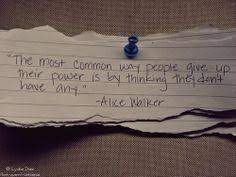 "The most common way people give up
their power is by thinking they don't
have any."
-Alice Walker